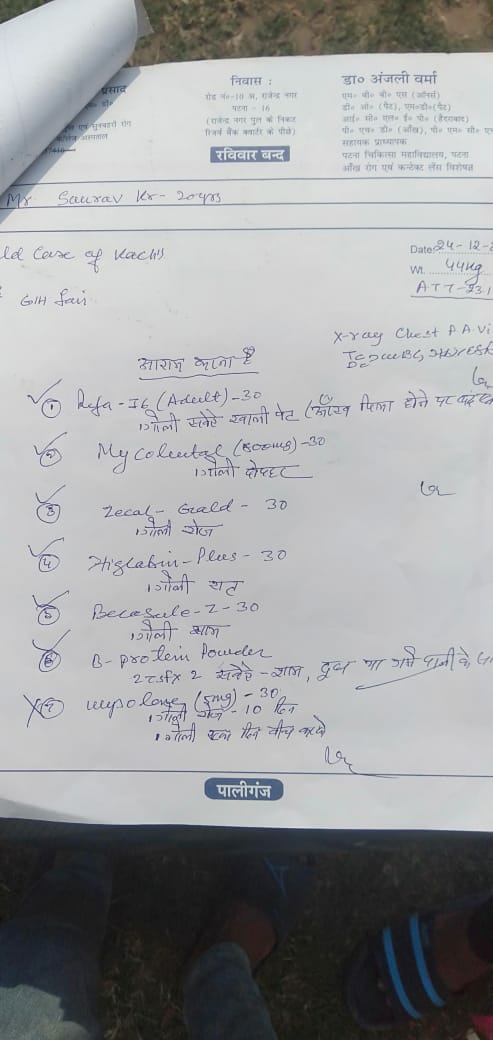 प्रसाद
निवास :
रोड नं०-10 अ, राजेन्द्र नगर
पटना - 16
(राजेन्द्र नगर पुल के निकट
रिजर्व बैंक क्वार्टर के पीछे)
रविवार बन्द
डा० अंजली वर्मा
एम० बी० बी० एस (ऑनर्स)
डी० ओ० (पेट), एम०डी०(पेट)
आई० सी० एल० ई० पी० (हैदराबाद)
पी० एच० डी० (आँख), पी० एम० सी० एच
सहायक प्राध्यापक
पटना चिकित्सा महाविद्यालय, पटना
आँख रोग एवं कन्टेक्ट लेंस विशेषज्ञ
Mr. Saurav Kr - 20yrs
Date 24-12-2
ld Case of Koch's
Wt. 44kg
ATT-23.1
G/H fair
X-ray Chest P.A. Vi
आराम करना है
① (Adult) - 30
1 गोली सवेरे खाली पेट (आँख पिला होने पर बंद
② (800mg) - 30
1 गोली दोपहर
③ Zecal - Gold - 30
1 गोली रोज
④ Higlobin - Plus - 30
1 गोली रात
⑤ Becosule - Z - 30
1 गोली शाम
⑥ B - protein Powder
2 tsf x 2 सवेरे - शाम, दूध या गर्म पानी के
(5mg) - 30
1 गोली रोज - 10 दिन
1 गोली एक दिन बीच करके
पालीगंज